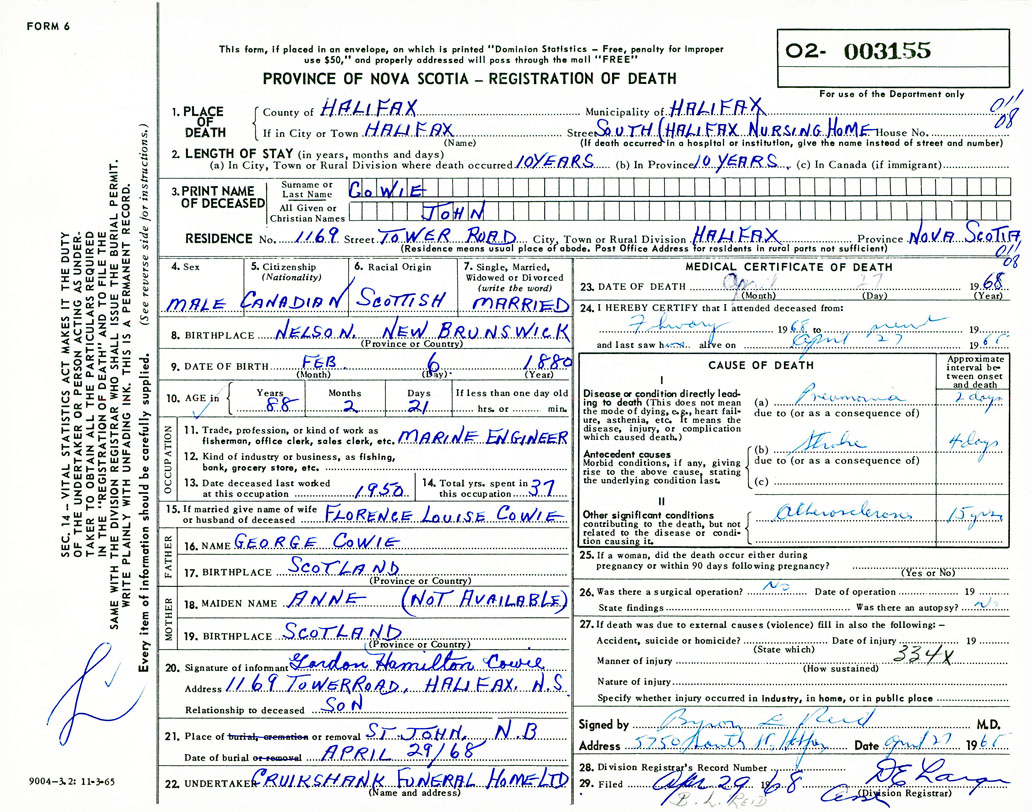 FORM 6
This form, if placed in an envelope, on which is printed "Dominion Statistics – Free, penalty for improper
use $50," and properly addressed will pass through the mail "FREE"
PROVINCE OF NOVA SCOTIA – REGISTRATION OF DEATH
02- 003155
For use of the Department only
SEC. 14 – VITAL STATISTICS ACT MAKES IT THE DUTY
OF THE UNDERTAKER OR PERSON ACTING AS UNDER-
TAKER TO OBTAIN ALL THE PARTICULARS REQUIRED
IN THE "REGISTRATION OF DEATH" AND TO FILE THE
SAME WITH THE DIVISION REGISTRAR WHO SHALL ISSUE THE BURIAL PERMIT.
WRITE PLAINLY WITH UNFADING INK. THIS IS A PERMANENT RECORD.
Every item of information should be carefully supplied. (See reverse side for instructions.)
1. PLACE OF DEATH
County of HALIFAX Municipality of HALIFAX
011
08
If in City or Town HALIFAX Street SOUTH (HALIFAX NURSING HOME House No.
(Name) (If death occurred in a hospital or institution, give the name instead of street and number)
2. LENGTH OF STAY (in years, months and days)
(a) In City, Town or Rural Division where death occurred 10 YEARS (b) In Province 10 YEARS. (c) In Canada (if immigrant)
3. PRINT NAME OF DECEASED
Surname or Last Name COWIE
All Given or Christian Names JOHN
RESIDENCE No. 1169 Street TOWER ROAD City, Town or Rural Division HALIFAX Province NOVA SCOTIA
(Residence means usual place of abode. Post Office Address for residents in rural parts not sufficient)
011
08
4. Sex MALE
5. Citizenship (Nationality) CANADIAN
6. Racial Origin SCOTTISH
7. Single, Married, Widowed or Divorced (write the word) MARRIED
8. BIRTHPLACE NELSON. NEW BRUNSWICK
(Province or Country)
9. DATE OF BIRTH FEB. 6. 1880
(Month) (Day) (Year)
10. AGE in Years 88 Months 2 Days 21 If less than one day old hrs. or min.
OCCUPATION
11. Trade, profession, or kind of work as
fisherman, office clerk, sales clerk, etc. MARINE ENGINEER
12. Kind of industry or business, as fishing,
bank, grocery store, etc.
13. Date deceased last worked
at this occupation 1950
14. Total yrs. spent in
this occupation 37
15. If married give name of wife
or husband of deceased FLORENCE LOUISE COWIE
FATHER
16. NAME GEORGE COWIE
17. BIRTHPLACE SCOTLAND
(Province or Country)
MOTHER
18. MAIDEN NAME ANNE (NOT AVAILABLE)
19. BIRTHPLACE SCOTLAND
(Province or Country)
20. Signature of informant Gordon Hamilton Cowie
Address 1169 TOWER ROAD, HALIFAX. N.S.
Relationship to deceased SON
21. Place of burial, cremation or removal ST. JOHN. N.B
Date of burial or removal APRIL 29/68
22. UNDERTAKER CRUIKSHANK FUNERAL HOME LTD
(Name and address)
9004-3.2: 11-3-65
MEDICAL CERTIFICATE OF DEATH
23. DATE OF DEATH April 27 1968
(Month) (Day) (Year)
24. I HEREBY CERTIFY that I attended deceased from:
February 1968 to 19
and last saw h alive on April 27 1968
CAUSE OF DEATH
Approximate interval between onset and death
I
Disease or condition directly leading to death (This does not mean the mode of dying, e.g., heart failure, asthenia, etc. It means the disease, injury, or complication which caused death.)
(a) Pneumonia 2 days
due to (or as a consequence of)
Antecedent causes
Morbid conditions, if any, giving rise to the above cause, stating the underlying condition last.
(b) Stroke 4 days
due to (or as a consequence of)
(c)
II
Other significant conditions
contributing to the death, but not related to the disease or condition causing it.
Atherosclerosis 15 yrs
25. If a woman, did the death occur either during
pregnancy or within 90 days following pregnancy?
(Yes or No)
26. Was there a surgical operation? No Date of operation 19
State findings Was there an autopsy? No
27. If death was due to external causes (violence) fill in also the following: –
Accident, suicide or homicide? Date of injury 19
(State which) 334X
Manner of injury
(How sustained)
Nature of injury
Specify whether injury occurred in industry, in home, or in public place
Signed by Byron L Reid M.D.
Address 5750 South St. Halifax Date April 27 1968
28. Division Registrar's Record Number
29. Filed Apr 29 1968
(Division Registrar)
B. L. REID